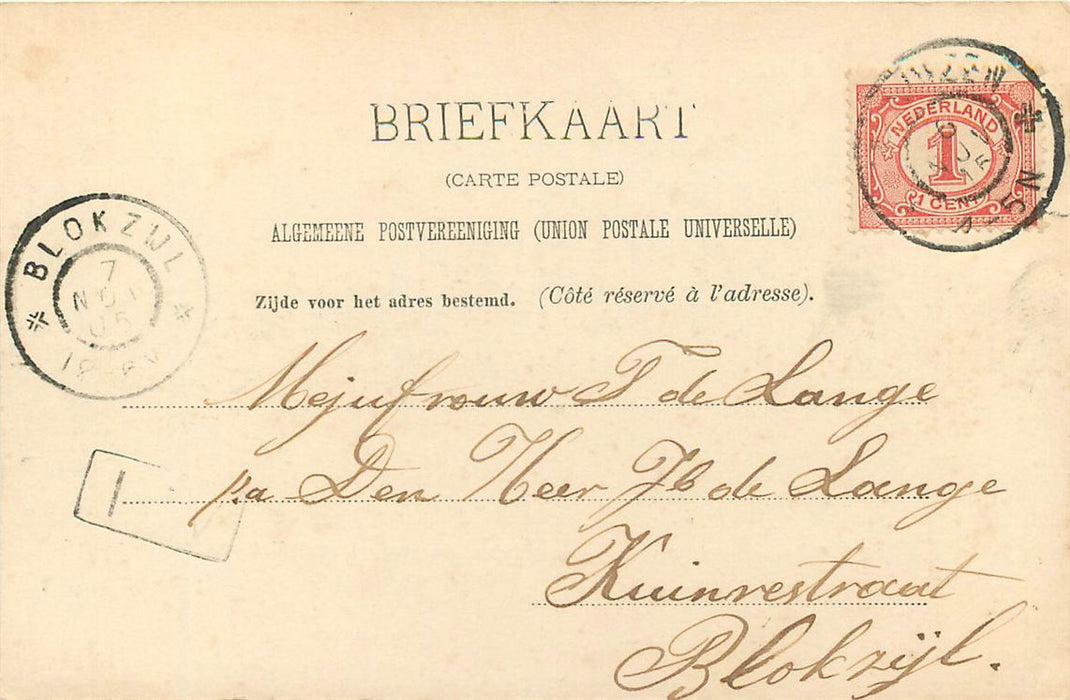 BRIEFKAART
(CARTE POSTALE)
ALGEMEENE POSTVEREENIGING (UNION POSTALE UNIVERSELLE)
Zijde voor het adres bestemd. (Côté réservé à l'adresse).
NEDERLAND
1
1 CENT
5N
BLOKZIJL
7
NOV
05
Mejufrouw T de Lange
p/a Den Heer Jb de Lange
Kuinrestraat
Blokzijl.
1